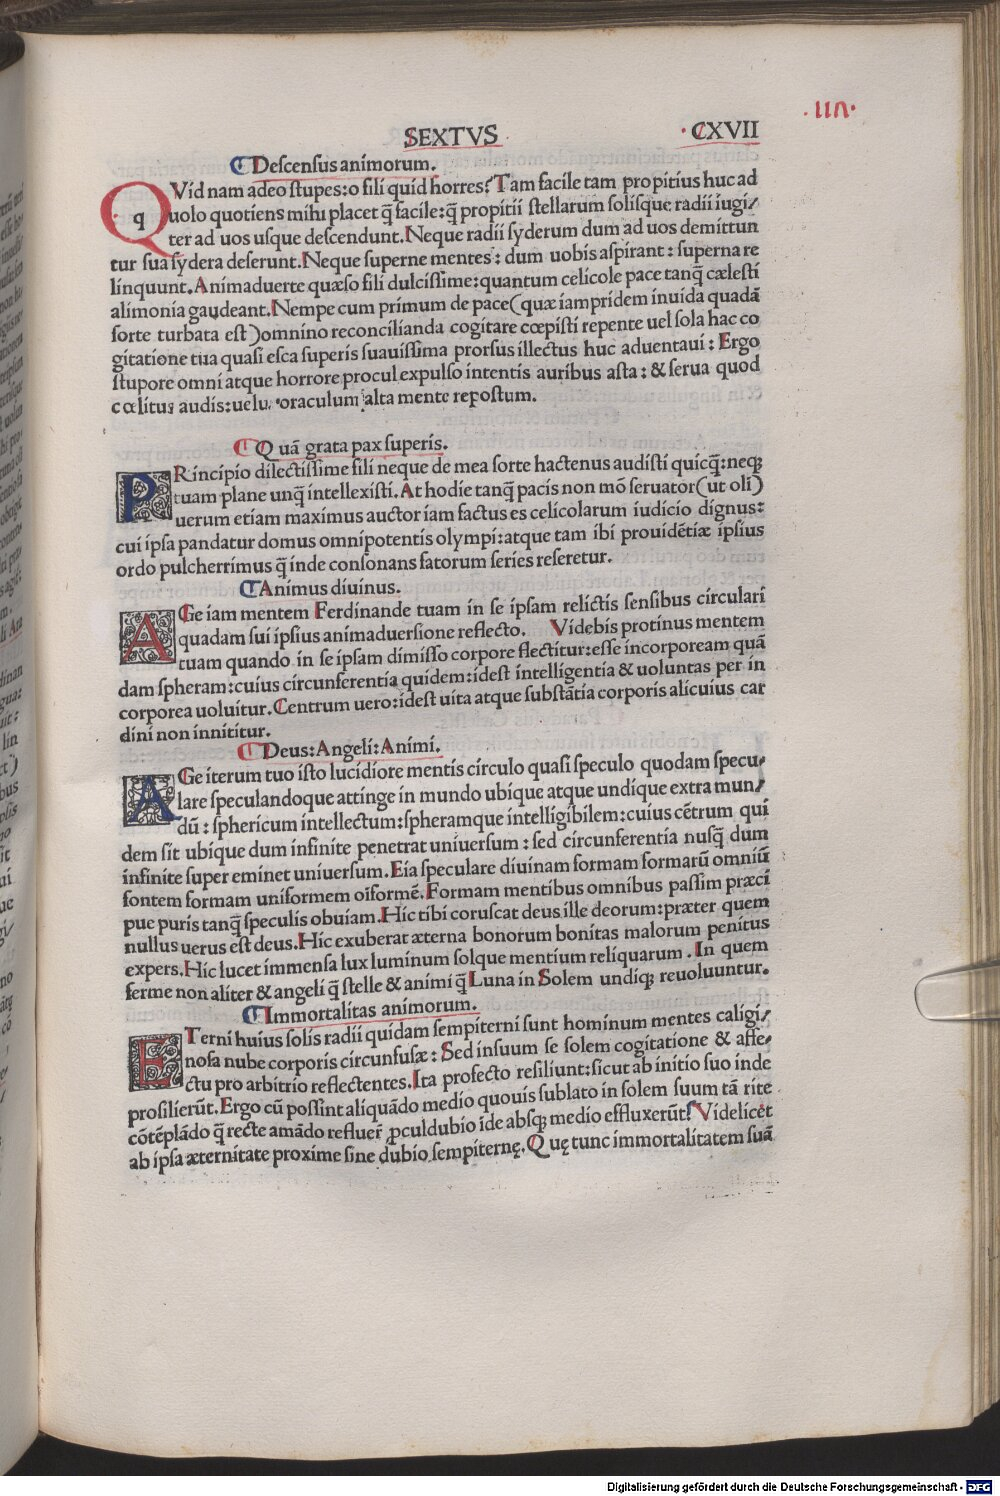 .117.
SEXTVS
.CXVII
Descensus animorum.
QVid nam adeo stupes:o fili quid horres? Tam facile tam propitius huc ad
q uolo quotiens mihi placet q̄ facile:q̄ propitii stellarum solisque radii iugi/
ter ad uos usque descendunt.Neque radii syderum dum ad uos demittun
tur sua sydera deserunt.Neque superne mentes: dum uobis aspirant: superna re
linquunt.Animaduerte quæso fili dulcissime:quantum celicole pace tanq̄ cælesti
alimonia gaudeant.Nempe cum primum de pace(quæ iampridem inuida quadā
sorte turbata est)omnino reconcilianda cogitare cœpisti repente uel sola hac co
gitatione tua quasi esca superis suauissima prorsus illectus huc aduentaui: Ergo
stupore omni atque horrore procul expulso intentis auribus asta: & serua quod
cœlitus audis: oraculum alta mente repostum.
Quā grata pax superis.
PRincipio dilectissime fili neque de mea sorte hactenus audisti quicq̄:neq;
tuam plane unq̄ intellexisti.At hodie tanq̄ pacis non mō seruator(ut oli)
uerum etiam maximus auctor iam factus es celicolarum iudicio dignus:
cui ipsa pandatur domus omnipotentis olympi:atque tam ibi prouidētiæ ipsius
ordo pulcherrimus q̄ inde consonans fatorum series reseretur.
Animus diuinus.
AGe iam mentem Ferdinande tuam in se ipsam relictis sensibus circulari
quadam sui ipsius animaduersione reflecto. Videbis protinus mentem
tuam quando in se ipsam dimisso corpore flectitur:esse incorpoream quā
dam spheram:cuius circunferentia quidem:idest intelligentia & uoluntas per in
corporea uoluitur.Centrum uero:idest uita atque substātia corporis alicuius car
dini non innititur.
Deus:Angeli:Animi.
AGe iterum tuo isto lucidiore mentis circulo quasi speculo quodam specu/
lare speculandoque attinge in mundo ubique atque undique extra mun/
dū: sphericum intellectum:spheramque intelligibilem:cuius cētrum qui
dem sit ubique dum infinite penetrat uniuersum: sed circunferentia nusq̄ dum
infinite super eminet uniuersum.Eia speculare diuinam formam formarū omniū
fontem formam uniformem oīformē.Formam mentibus omnibus passim præci
pue puris tanq̄ speculis obuiam.Hic tibi coruscat deus ille deorum:præter quem
nullus uerus est deus.Hic exuberat æterna bonorum bonitas malorum penitus
expers.Hic lucet immensa lux luminum solque mentium reliquarum.In quem
ferme non aliter & angeli q̄ stelle & animi q̄ Luna in Solem undiq; reuoluuntur.
Immortalitas animorum.
ETerni huius solis radii quidam sempiterni sunt hominum mentes caligi/
nosa nube corporis circunfusæ: Sed insuum se solem cogitatione & affe/
ctu pro arbitrio reflectentes.Ita profecto resiliunt:sicut ab initio suo inde
prosilierūt.Ergo cū possint aliquādo medio quouis sublato in solem suum tā rite
cōtēplādo q̄ recte amādo refluer̄ ꝓculdubio ide absq; medio effluxerūt? Videlicet
ab ipsa æternitate proxime sine dubio sempiternę.Quę tunc immortalitatem suā
Digitalisierung gefördert durch die Deutsche Forschungsgemeinschaft - DFG